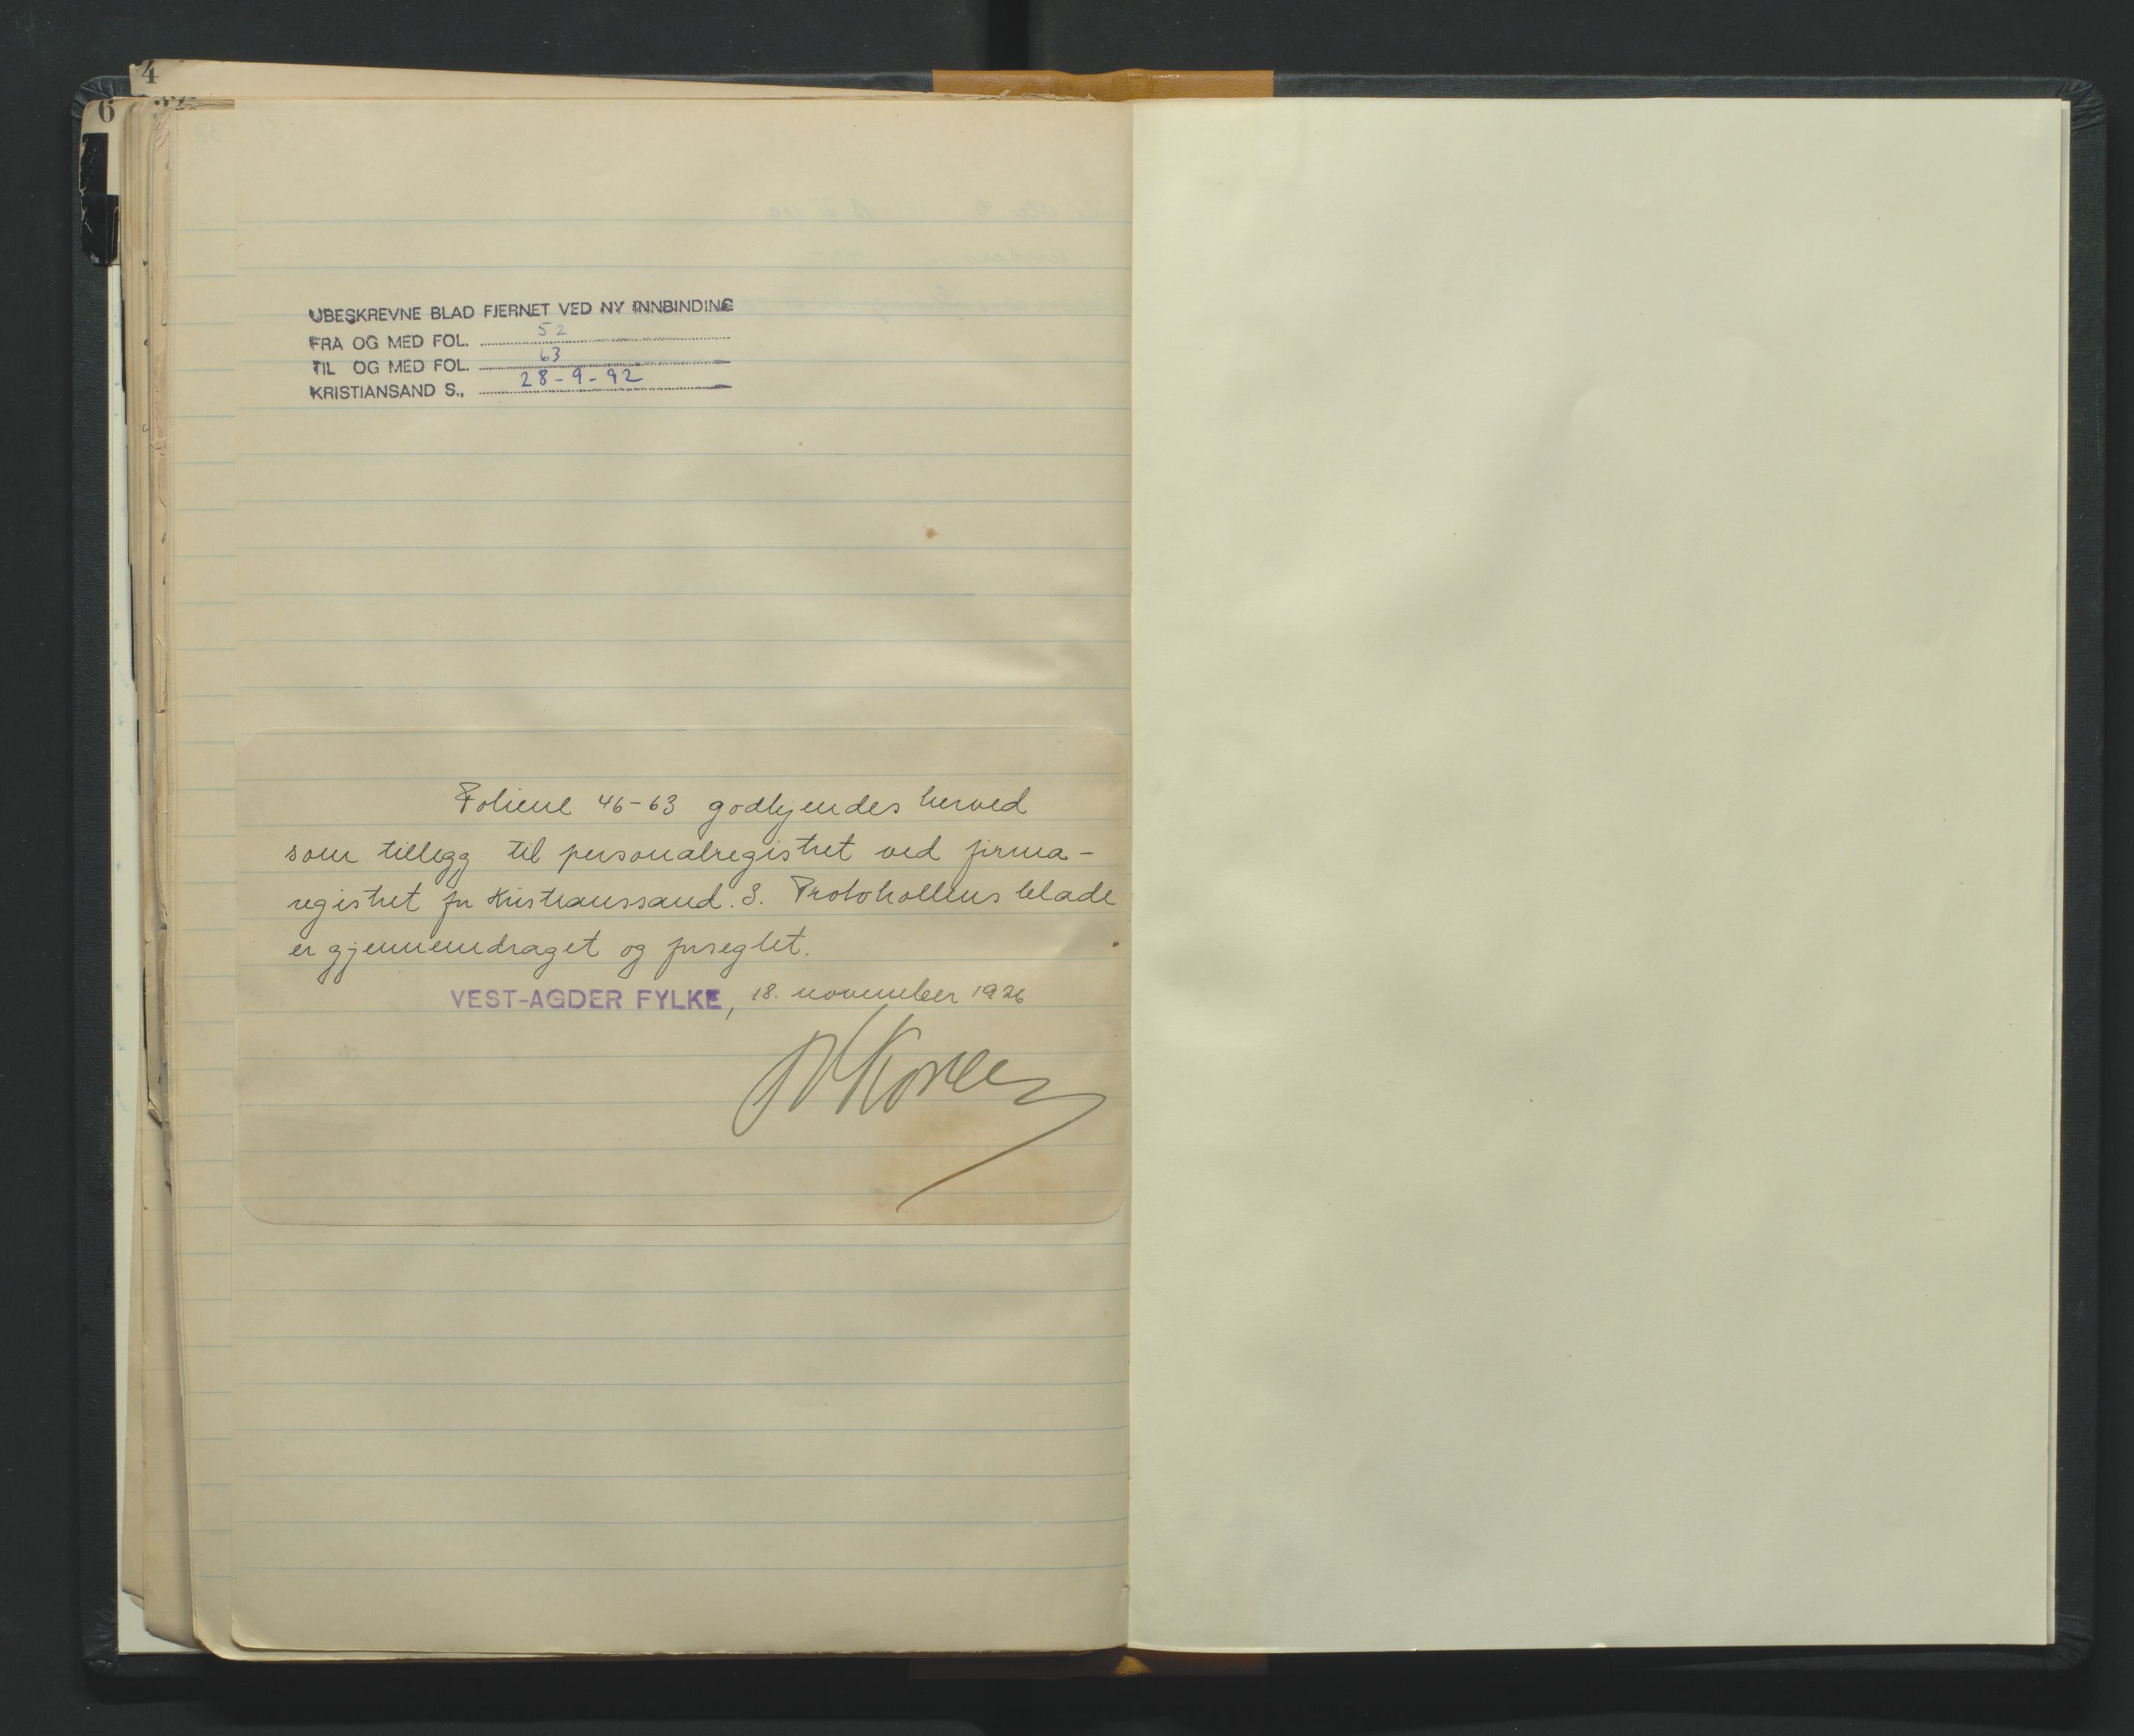 4
6
UBESKREVNE BLAD FJERNET VED NY INNBINDING
FRA OG MED FOL. 52
TIL OG MED FOL. 63
KRISTIANSAND S., 28-9-92
Foliene 46-63 godkjendes herved
som tillegg til personalregistret ved firma-
registret for Kristianssand. S. Protokollens blade
er gjennemdraget og forseglet.
VEST-AGDER FYLKE, 18. november 1926